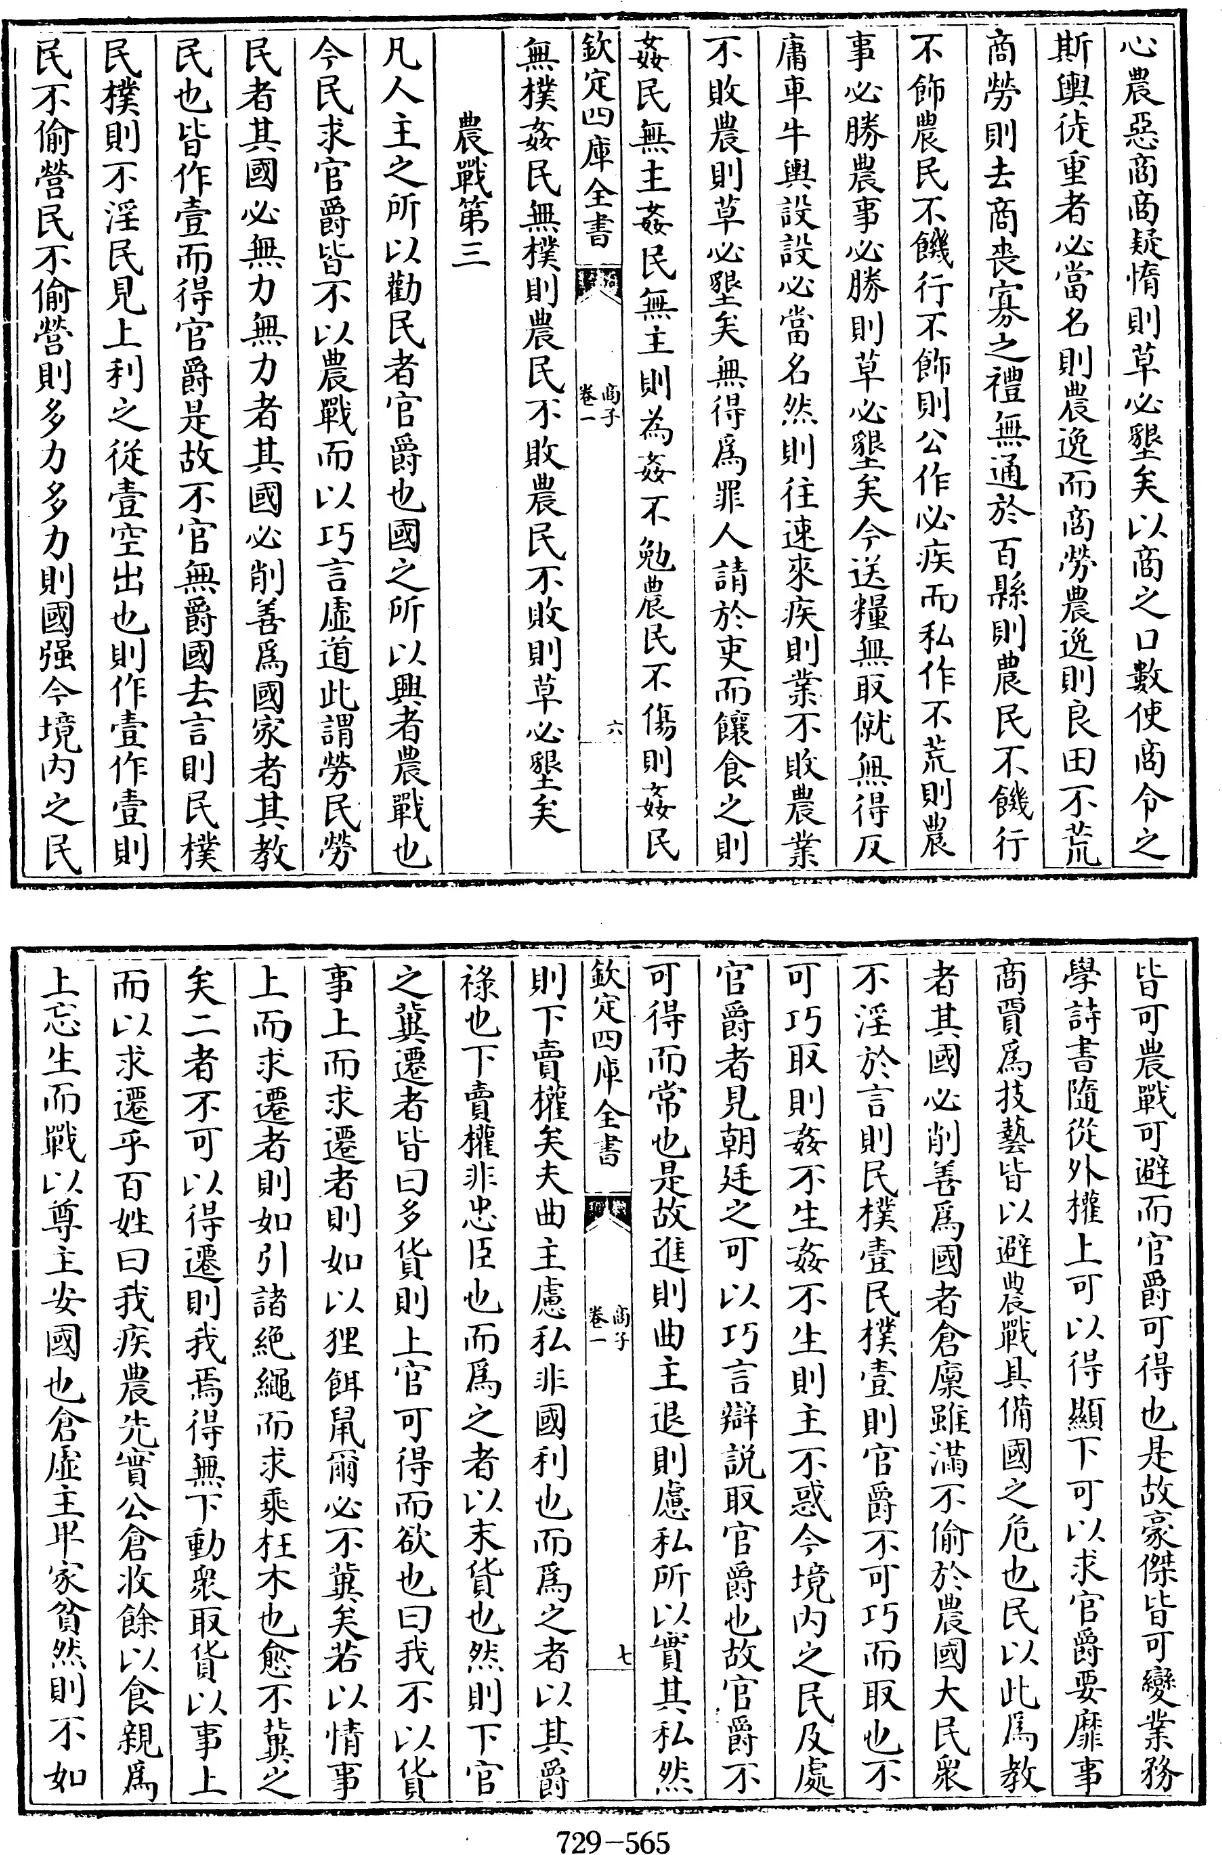 心農惡商商疑惰則草必墾矣以商之口數使商令之
斯輿徒重者必當名則農逸而商勞農逸則良田不荒
商勞則去商喪寡之禮無通於百縣則農民不饑行
不飾農民不饑行不飾則公作必疾而私作不荒則農
事必勝農事必勝則草必墾矣今送糧無取僦無得反
庸車牛輿設設必當名然則往速來疾則業不敗農業
不敗農則草必墾矣無得爲罪人請於吏而饟食之則
姦民無主姦民無主則為姦不勉農民不傷則姦民
欽定四庫全書
商子
卷一
六
無樸姦民無樸則農民不敗農民不敗則草必墾矣
農戰第三
凡人主之所以勸民者官爵也國之所以興者農戰也
今民求官爵皆不以農戰而以巧言虛道此謂勞民勞
民者其國必無力無力者其國必削善爲國家者其教
民也皆作壹而得官爵是故不官無爵國去言則民樸
民樸則不淫民見上利之從壹空出也則作壹作壹則
民不偷營民不偷營則多力多力則國强今境内之民
皆可農戰可避而官爵可得也是故豪傑皆可變業務
學詩書隨從外權上可以得顯下可以求官爵要靡事
商賈爲技藝皆以避農戰具備國之危也民以此爲教
者其國必削善爲國者倉廪雖滿不偷於農國大民衆
不淫於言則民樸壹民樸壹則官爵不可巧而取也不
可巧取則姦不生姦不生則主不惑今境内之民及處
官爵者見朝廷之可以巧言辯説取官爵也故官爵不
可得而常也是故進則曲主退則慮私所以實其私然
欽定四庫全書
商子
卷一
七
則下賣權矣夫曲主慮私非國利也而爲之者以其爵
祿也下賣權非忠臣也而爲之者以末貨也然則下官
之冀遷者皆曰多貨則上官可得而欲也曰我不以貨
事上而求遷者則如以狸餌鼠爾必不冀矣若以情事
上而求遷者則如引諸絶繩而求乘枉木也愈不冀之
矣二者不可以得遷則我焉得無下動衆取貨以事上
而以求遷乎百姓曰我疾農先實公倉收餘以食親爲
上忘生而戰以尊主安國也倉虛主卑家貧然則不如
729-565